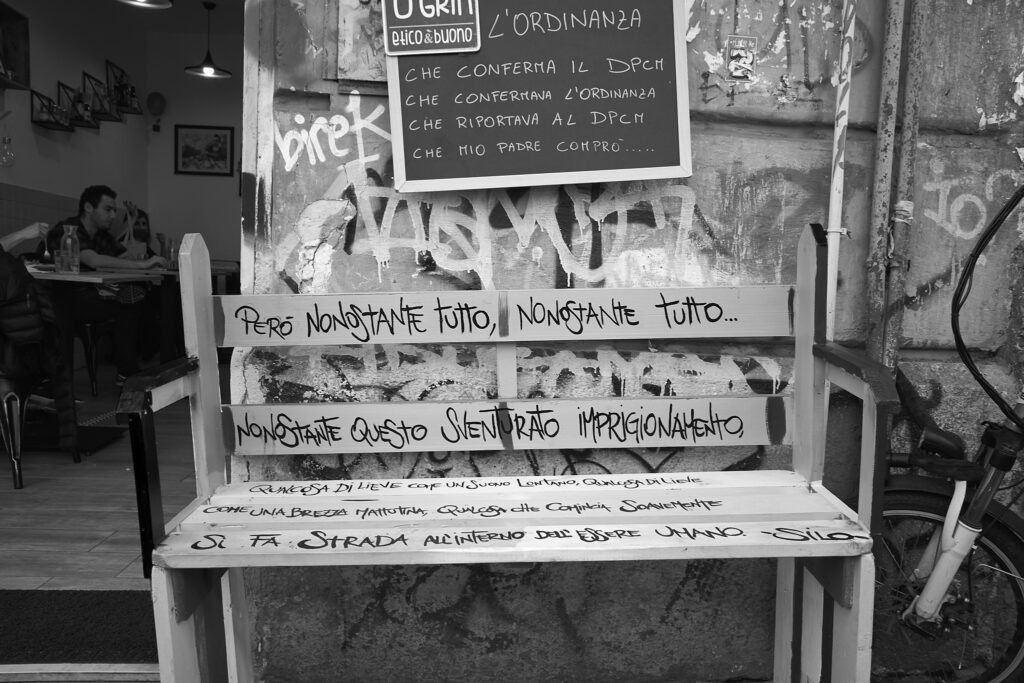 O'GRIN
etico & buono
L'ORDINANZA
CHE CONFERMA IL DPCM
CHE CONFERMAVA L'ORDINANZA
CHE RIPORTAVA AL DPCM
CHE MIO PADRE COMPRÒ.....
birek
PERÒ NONOSTANTE TUTTO, NONOSTANTE TUTTO...
NONOSTANTE QUESTO SVENTURATO IMPRIGIONAMENTO,
QUALCOSA DI LIEVE COME UN SUONO LONTANO, QUALCOSA DI LIEVE
COME UNA BREZZA MATTUTINA, QUALCOSA CHE COMINCIA SOAVEMENTE
SI FA STRADA ALL'INTERNO DELL'ESSERE UMANO. -SILO-